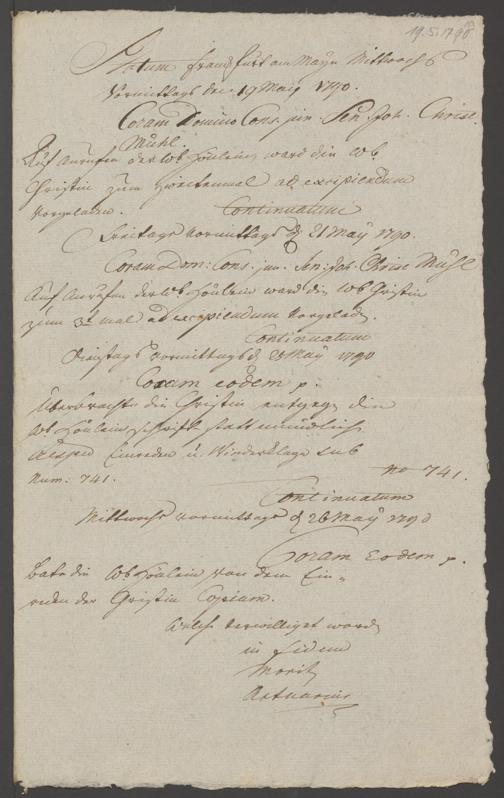 19.5.1790
Actum Franckfurt am Mayn Mittwochs
Vormittags den 19 May 1790.
Coram Domino Cons. jun. Sen. Joh. Christ.
Mühl.
Auf Anrufen der Wb. ward die Wb.
Christin zum ad excipiendum
vorgeladen. Continuatum
Freitags Vormittags d. 21 May 1790.
Coram Dom: Cons. jun. Sen: Joh. Christ Mühl
Auf Anrufen der Wb ward die Wb Christin
zum 3t mal ad excipiendum vorgelad.
Continuatum
Dienstags Vormittags d. 25 May 1790
Coram eodem p.
Überbrachte die Christin entgegen die
Wb. Schrift statt mündlich
Einreden u. Wiederklage sub
Num: 741. no 741.
Continuatum
Mittwochs Vormittags d 26 May 1790
Coram Eodem p.
Bate die Wb von dem Ein-
reden der Christin Copiam.
Welche verwilliget worden
in fidem
Moritz
Actuarius